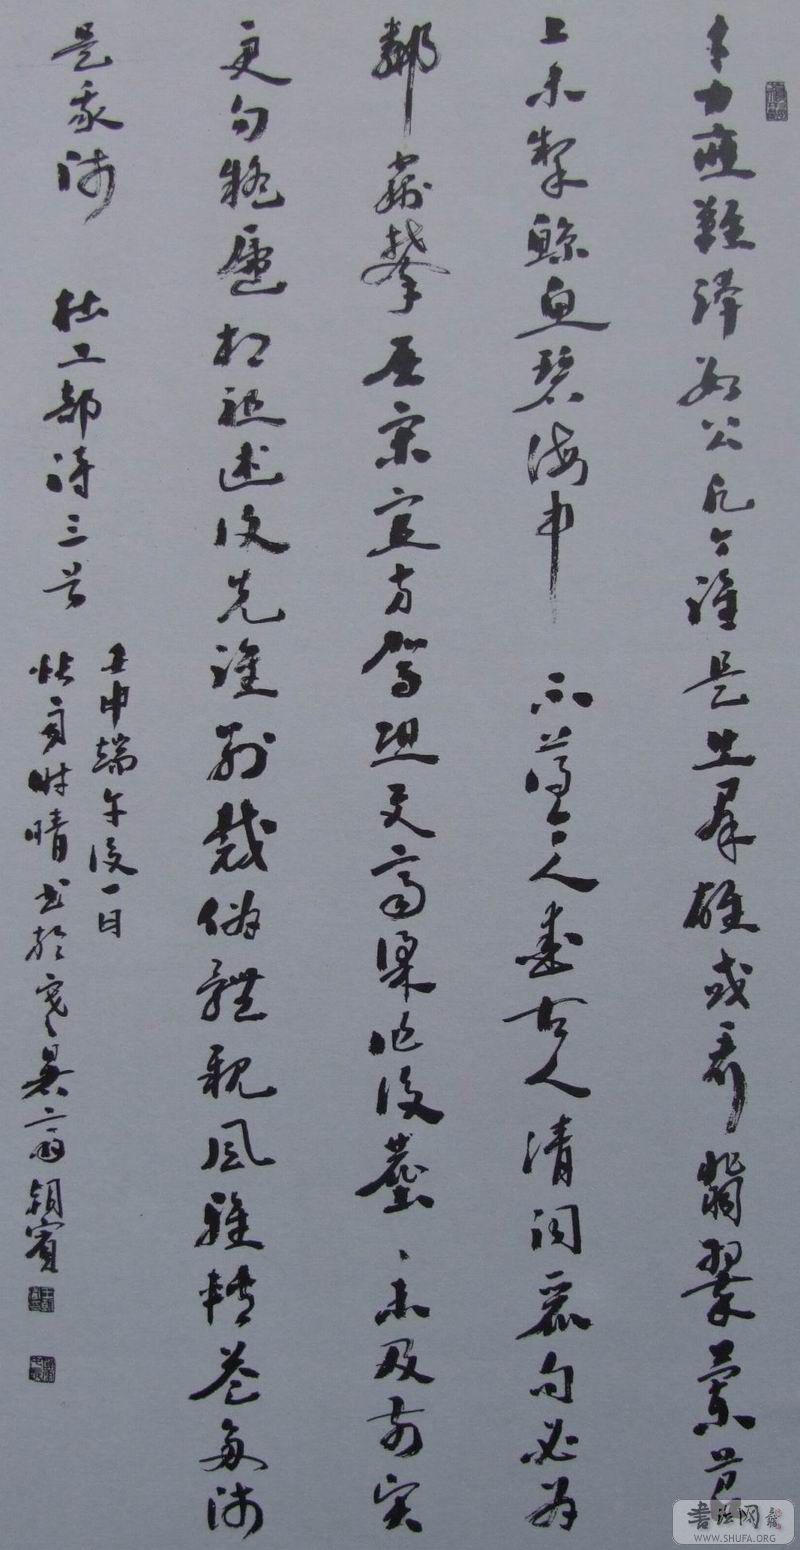 才力應難誇數公凡今誰是出群雄或看翡翠蘭苕
上未掣鯨魚碧海中 不薄今人愛古人清詞麗句必為
鄰竊攀屈宋宜方駕恐與齊梁作後塵 未及前賢
更勿疑遞相祖述復先誰別裁偽體親風雅轉益多師
是汝師 杜工部詩三首
壬申端午後一日
時晴書於
書法网
WWW.SHUFA.ORG